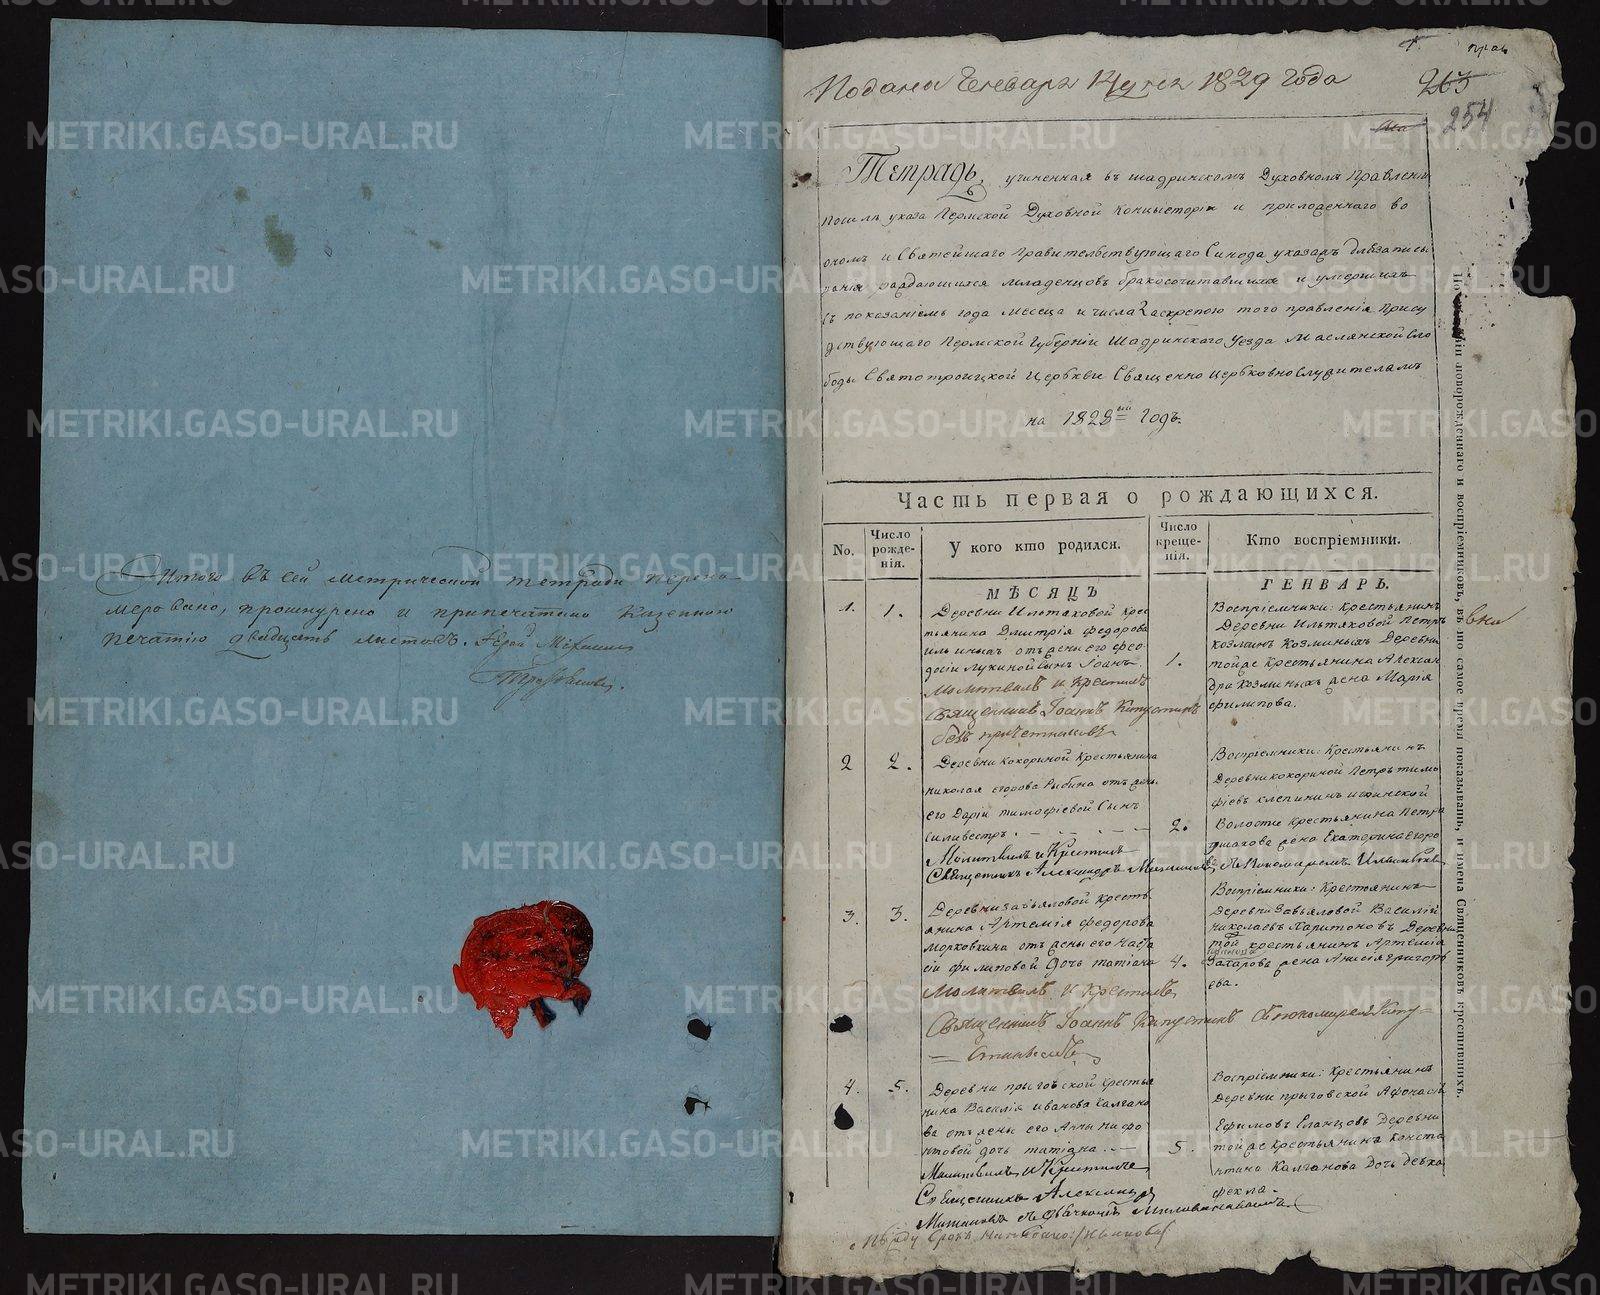 Итого въ сей метрической тетради перено-
меровано, прошнурено и припечатано казенною
печатію двадцать листовъ. Іерей
Подана Генваря 14 дня 1829 года
263
254
Тетрадь, учиненная въ шадринскомъ Духовномъ Правленіи
посилѣ указа Пермской Духовной Консисторіи и приложеннаго во
ономъ и Святейшаго Правительствующаго Синода указахъ для записы
ванія раждающихся младенцовъ бракосочитавшихся и умершихъ
съ показаніемъ года месеца и числа заскрепою того правленія Прису
дствующаго Пермской Губерніи Шадринскаго Уезда Маслянской Сло
боды Святотроицкой Церькви Священно Церковнослужителямъ
на 1828 годъ.
Часть первая о рождающихся.
No.
Число рожде-нія.
У кого кто родился.
Число креще-нія.
Кто воспріемники.
МѢСЯЦЪ
ГЕНВАРЬ.
1.
1.
Деревни Ильтяковой крес
тьянина Дмитрія Федорова
Ильиныхъ отъ жены его Фео
досіи Лукиной сынъ Іоанъ.
Молитвилъ и Крестилъ
Священникъ Іоаннъ Капустинъ
безъ причетниковъ
1.
Воспріемники: крестьянинъ
Деревни Ильтяковой Петръ
Козминъ Козминыхъ Деревни
той же крестьянина Алексан
дра Козминыхъ жена Марія
Филипова.
2
2.
Деревни Кокориной Крестьянина
Николая Егорова Рыбина отъ жены
его Даріи Тимофіевой Сынъ
Силивестръ.
Молитвилъ и Крестилъ
Священникъ Александръ
2.
Воспріемники: Крестьянинъ
Деревни Кокориной Петръ Тимо
фіевъ Клепининъ
Волости крестьянина Петра
жена Екатерина Егоро
3.
3.
Деревни Завьяловой кресть
янина Артемія Федорова
Морковкина отъ жены его Наста
сіи Филиповой дочь Татіана
Молитвилъ и Крестилъ
Священникъ Іоаннъ Капустинъ
4.
Воспріемники: Крестоянинъ
Деревни Завьяловой Василій
Николаевъ Харитоновъ Деревни
той крестьянинъ Артемія
Захаровъ жена Анисія Григорь
ева.
4.
5.
Деревни Прыговской Крестья
нина Василія Иванова Калгано
ва отъ жены его Анны Нифо
нтовой дочь Татіана.
Молитвилъ и Крестилъ
Священникъ Александръ
5.
Воспріемники: Крестьянинъ
Деревни Прыговской Афонасій
Ефимовъ Сланцовъ Деревни
той же Крестьянина Конста
нтина Калганова Дочь девка
Фекла.
имена Священниковъ крестившихъ.
METRIKI.GASO-URAL.RU